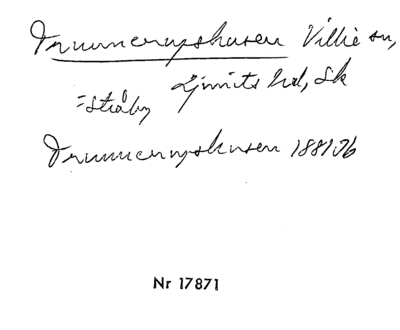 Drummerupshusen Villie sn,
Ljunits hd, Sk
=Stråby
Drummerupshusen 1881 Jb
Nr 17871